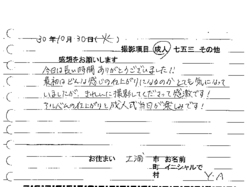 30年10月30日(火)
撮影項目 成人 七五三 その他
感想をお願いします
今日は長い時間ありがとうございました!!
最初はどんな感じの仕上がりになるのかとても気になって
いましたが、きれいに撮影してくださって感激です!
アルバムの仕上がりと成人式当日が楽しみです!
お住まい 市 お名前
町 イニシャルで
村 Y.A